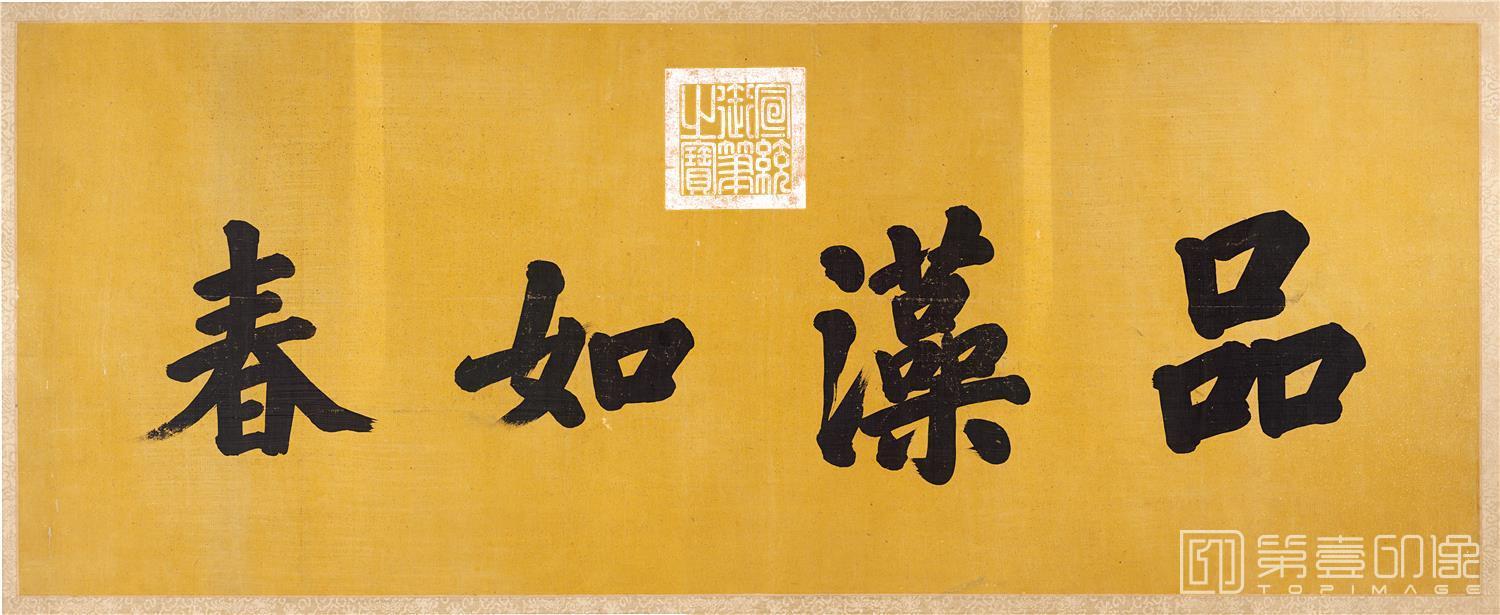 宣統御筆之寶
品藻如春
第壹印像
TOPIMAGE